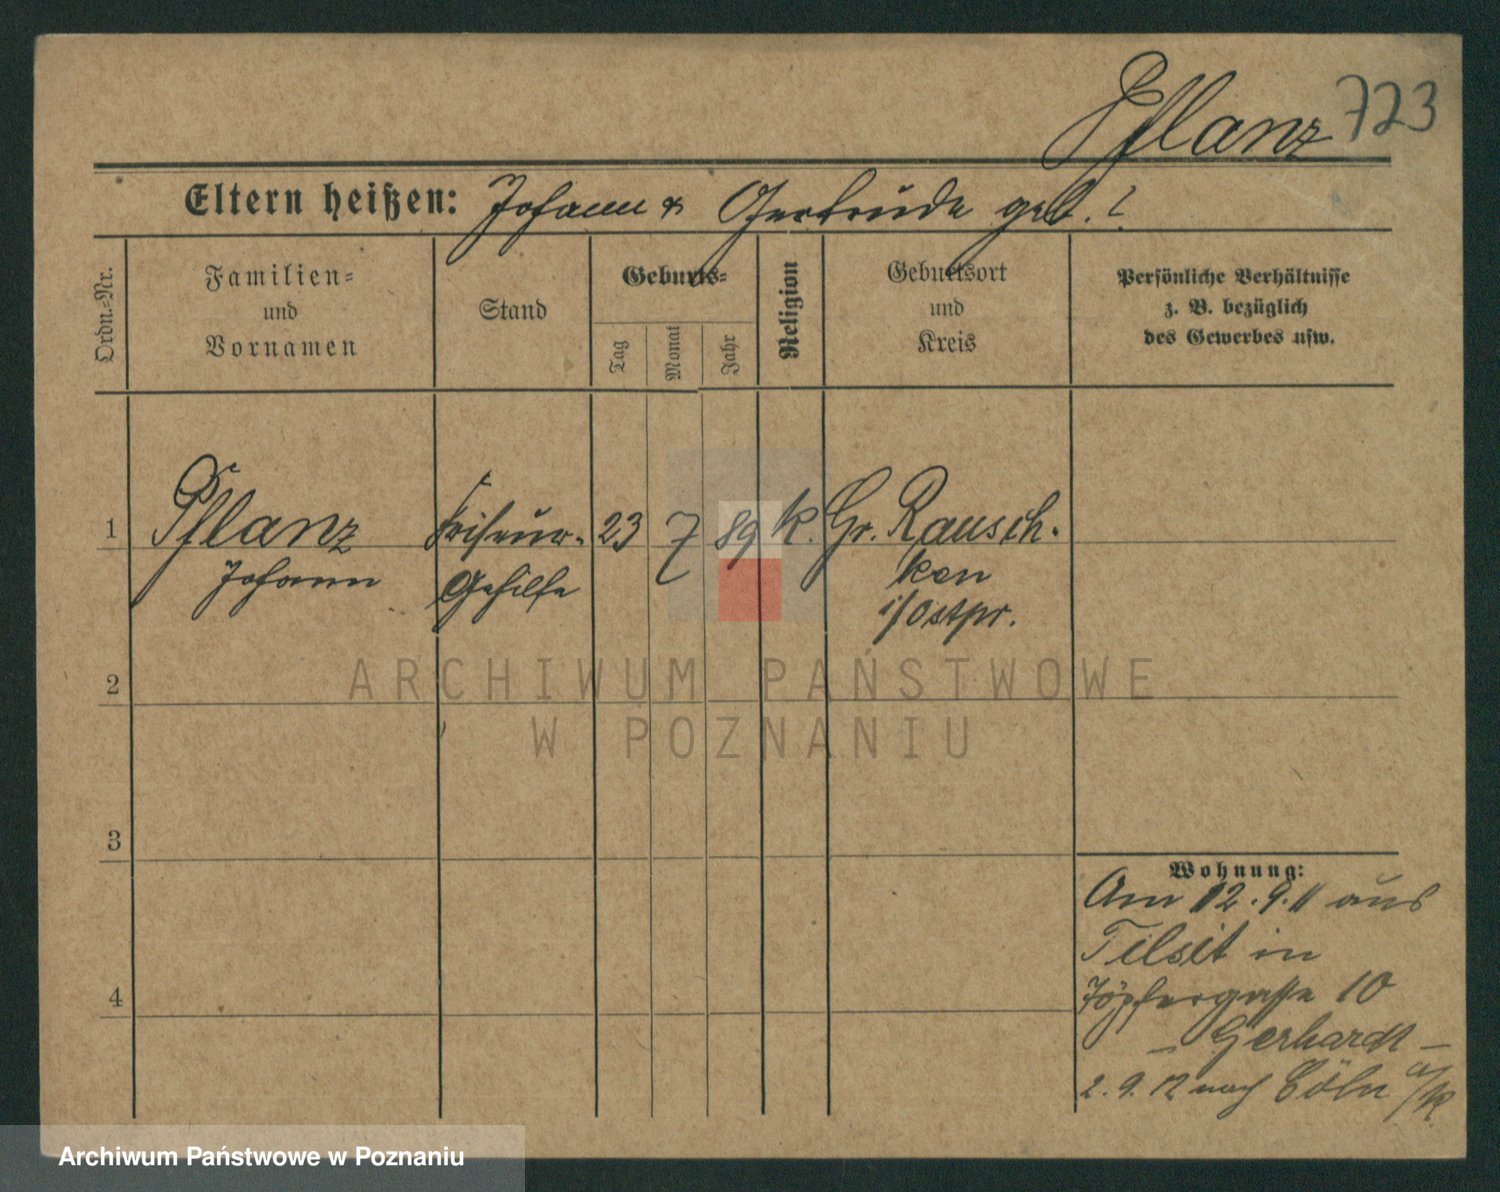 Pflanz 723
Eltern heißen: Johann & Gertrude geb. ?
Ordn.-Nr.
Familien-
und
Vornamen
Stand
Geburts-
Tag
Monat
Jahr
Religion
Geburtsort
und
Kreis
Persönliche Verhältnisse
z. B. bezüglich
des Gewerbes usw.
1 Pflanz Friseur- 23 7 89 k. Gr. Rausch-
Johann Gehilfe ken
i/Ostpr.
2
3
4
Wohnung:
Am 12.9.11 aus
Tilsit in
Töpfergasse 10
- Gerhardt -
2.9.12 nach Cöln a/R
ARCHIWUM PAŃSTWOWE
W POZNANIU
Archiwum Państwowe w Poznaniu